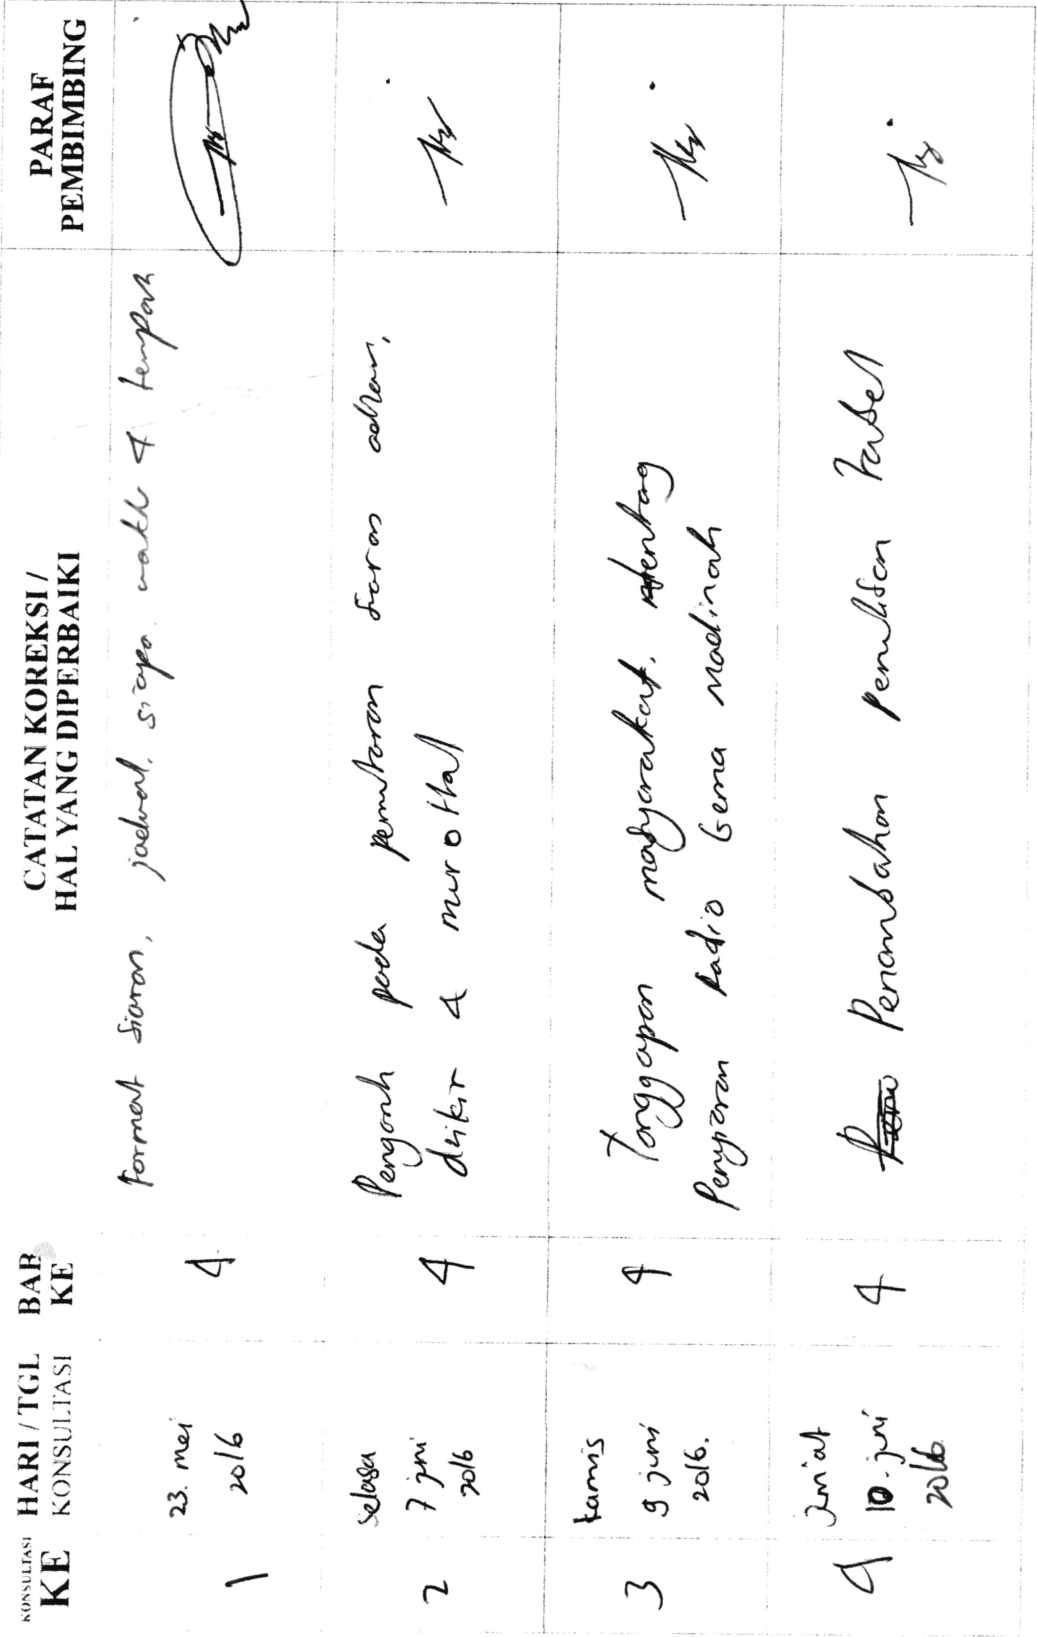 KONSULTASI
KE
HARI / TGL
KONSULTASI
BAB
KE
CATATAN KOREKSI /
HAL YANG DIPERBAIKI
PARAF
PEMBIMBING
1
23. mei
2016
4
Format siaran, jadwal, siapa. waktu & tempat
2
Selasa
7 juni
2016
4
Pengaruh pada pemutaran siaran adzan,
dzikir & murottal
3
kamis
9 juni
2016.
4
Tanggapan masyarakat. tentang
Penyiaran Radio Gema Madinah
4
jum'at
10. juni
2016
4
Penambahan penulisan Tabel